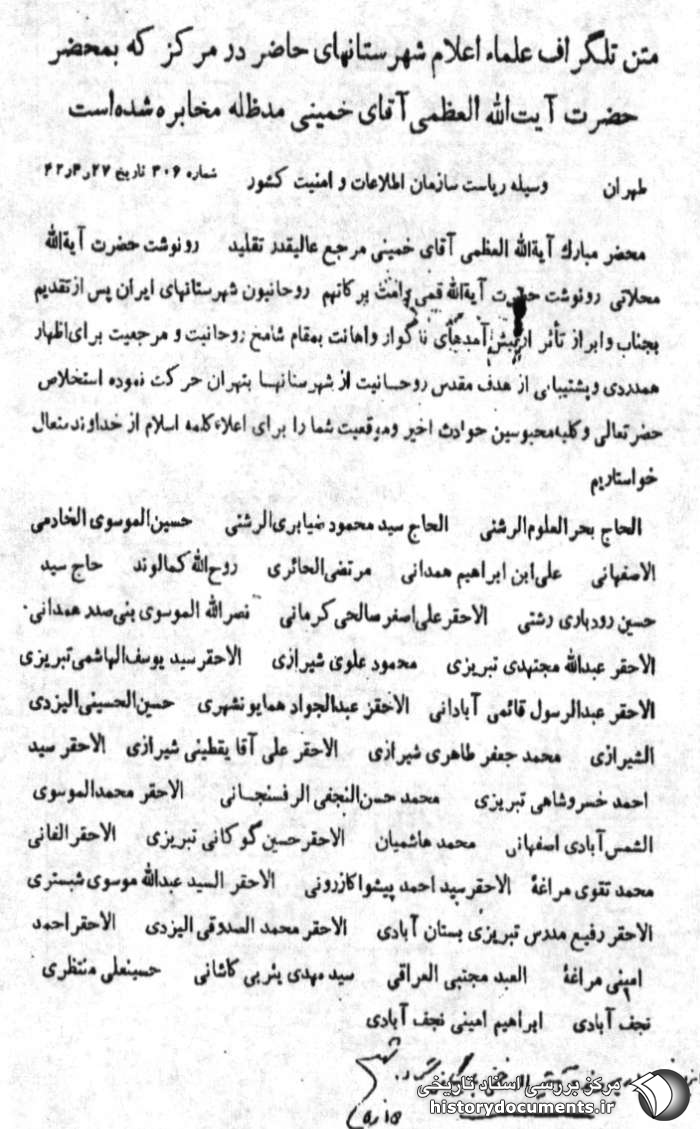 متن تلگراف علماء اعلام شهرستانهای حاضر در مرکز که بمحضر
حضرت آیت‌الله العظمی آقای خمینی مدظله مخابره شده‌است
طهران وسیله ریاست سازمان اطلاعات و امنیت کشور شماره ۳۰۶ تاریخ ۴۲ر۴ر۲۷
محضر مبارک آیةالله العظمی آقای خمینی مرجع عالیقدر تقلید رونوشت حضرت آیةالله
محلاتی رونوشت حضرت آیةالله قمی دامت برکاتهم روحانیون شهرستانهای ایران پس از تقدیم
بجناب وابراز تأثر از پیش‌آمدهای ناگوار واهانت بمقام شامخ روحانیت و مرجعیت برای اظهار
همدردی و پشتیبانی از هدف مقدس روحسانیت از شهرستانهـا بتهران حرکت نموده استخلاص
حضرتعالی وکلیه‌محبوسین حوادث اخیر وموقعیت شما را برای اعلاء‌کلمه اسلام از خداوند‌متعال
خواستاریم
الحاج بحرالعلوم‌الرشتی الحاج سید محمود ضیابری‌الرشتی حسین‌الموسوی الخادمی
الاصفهانی علی‌ابن ابراهیم همدانی مرتضی‌الحائری روح‌الله کمالوند حاج سید
حسین رودباری رشتی الاحقر‌علی‌اصغر‌صالحی کرمانی نصرالله الموسوی بنی‌صدر همدانی
الاحقر عبدالله مجتهدی تبریزی محمود علوی شیرازی الاحقر سید یوسف‌الهاشمی‌تبریزی
الاحقر عبدالرسول قائمی آبادانی الاحقر عبدالجواد همایونشهری حسین‌الحسینی‌الیزدی
الشیرازی محمد جعفر طاهری شیرازی الاحقر علی آقا یقطینی شیرازی الاحقر سید
احمد خسروشاهی تبریزی محمد حسن‌النجفی الرفسنجـانی الاحقر محمدالموسوی
الشمس‌آبادی اصفهانی محمد هاشمیان الاحقر‌حسین گوگانی تبریزی الاحقر الفانی
محمد تقوی مراغهٔ الاحقر‌سید احمد پیشوا‌کازرونی الاحقر السید عبدالله موسوی شبستری
الاحقر رفیع مدرس تبریزی بستان آبادی الاحقر محمد الصدوقی الیزدی الاحقر احمد
امینی مراغهٔ العبد مجتبی العراقی سید مهدی یثربی کاشانی حسینعلی منتظری
نجف آبادی ابراهیم امینی نجف آبادی
مرکز بررسی اسناد تاریخی
historydocuments.ir